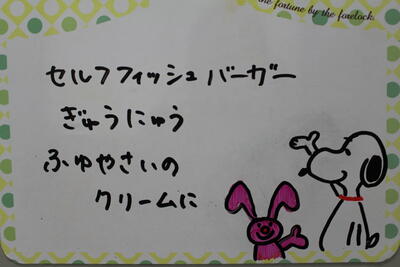 the fortune by the forelock.
セルフフィッシュバーガー
ぎゅうにゅう
ふゆやさいの
クリームに